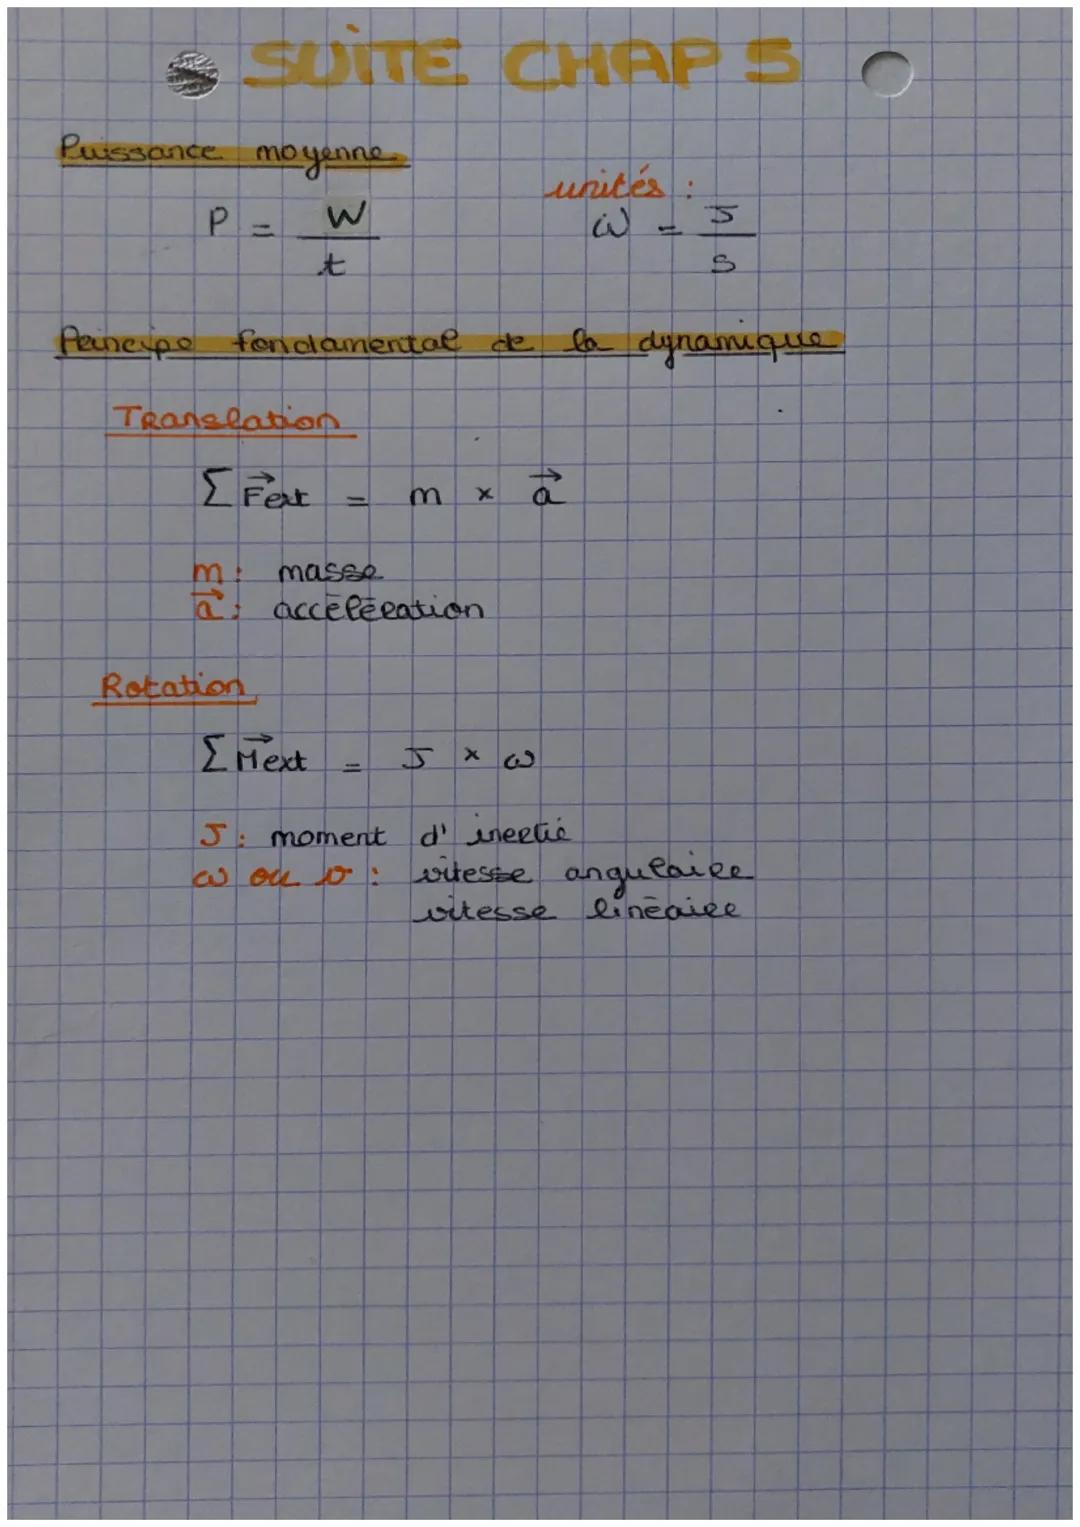 SUITE CHAP 5
Puissance moyenne
unités :
P = W / t
W = J / s
Principe fondamental de la dynamique
Translation
∑ F⃗ext = m × a⃗
m : masse
a⃗ : accélération
Rotation
∑ M⃗ext = J × ω
J : moment d'inertié
ω ou v : vitesse angulaire
vitesse linéaire